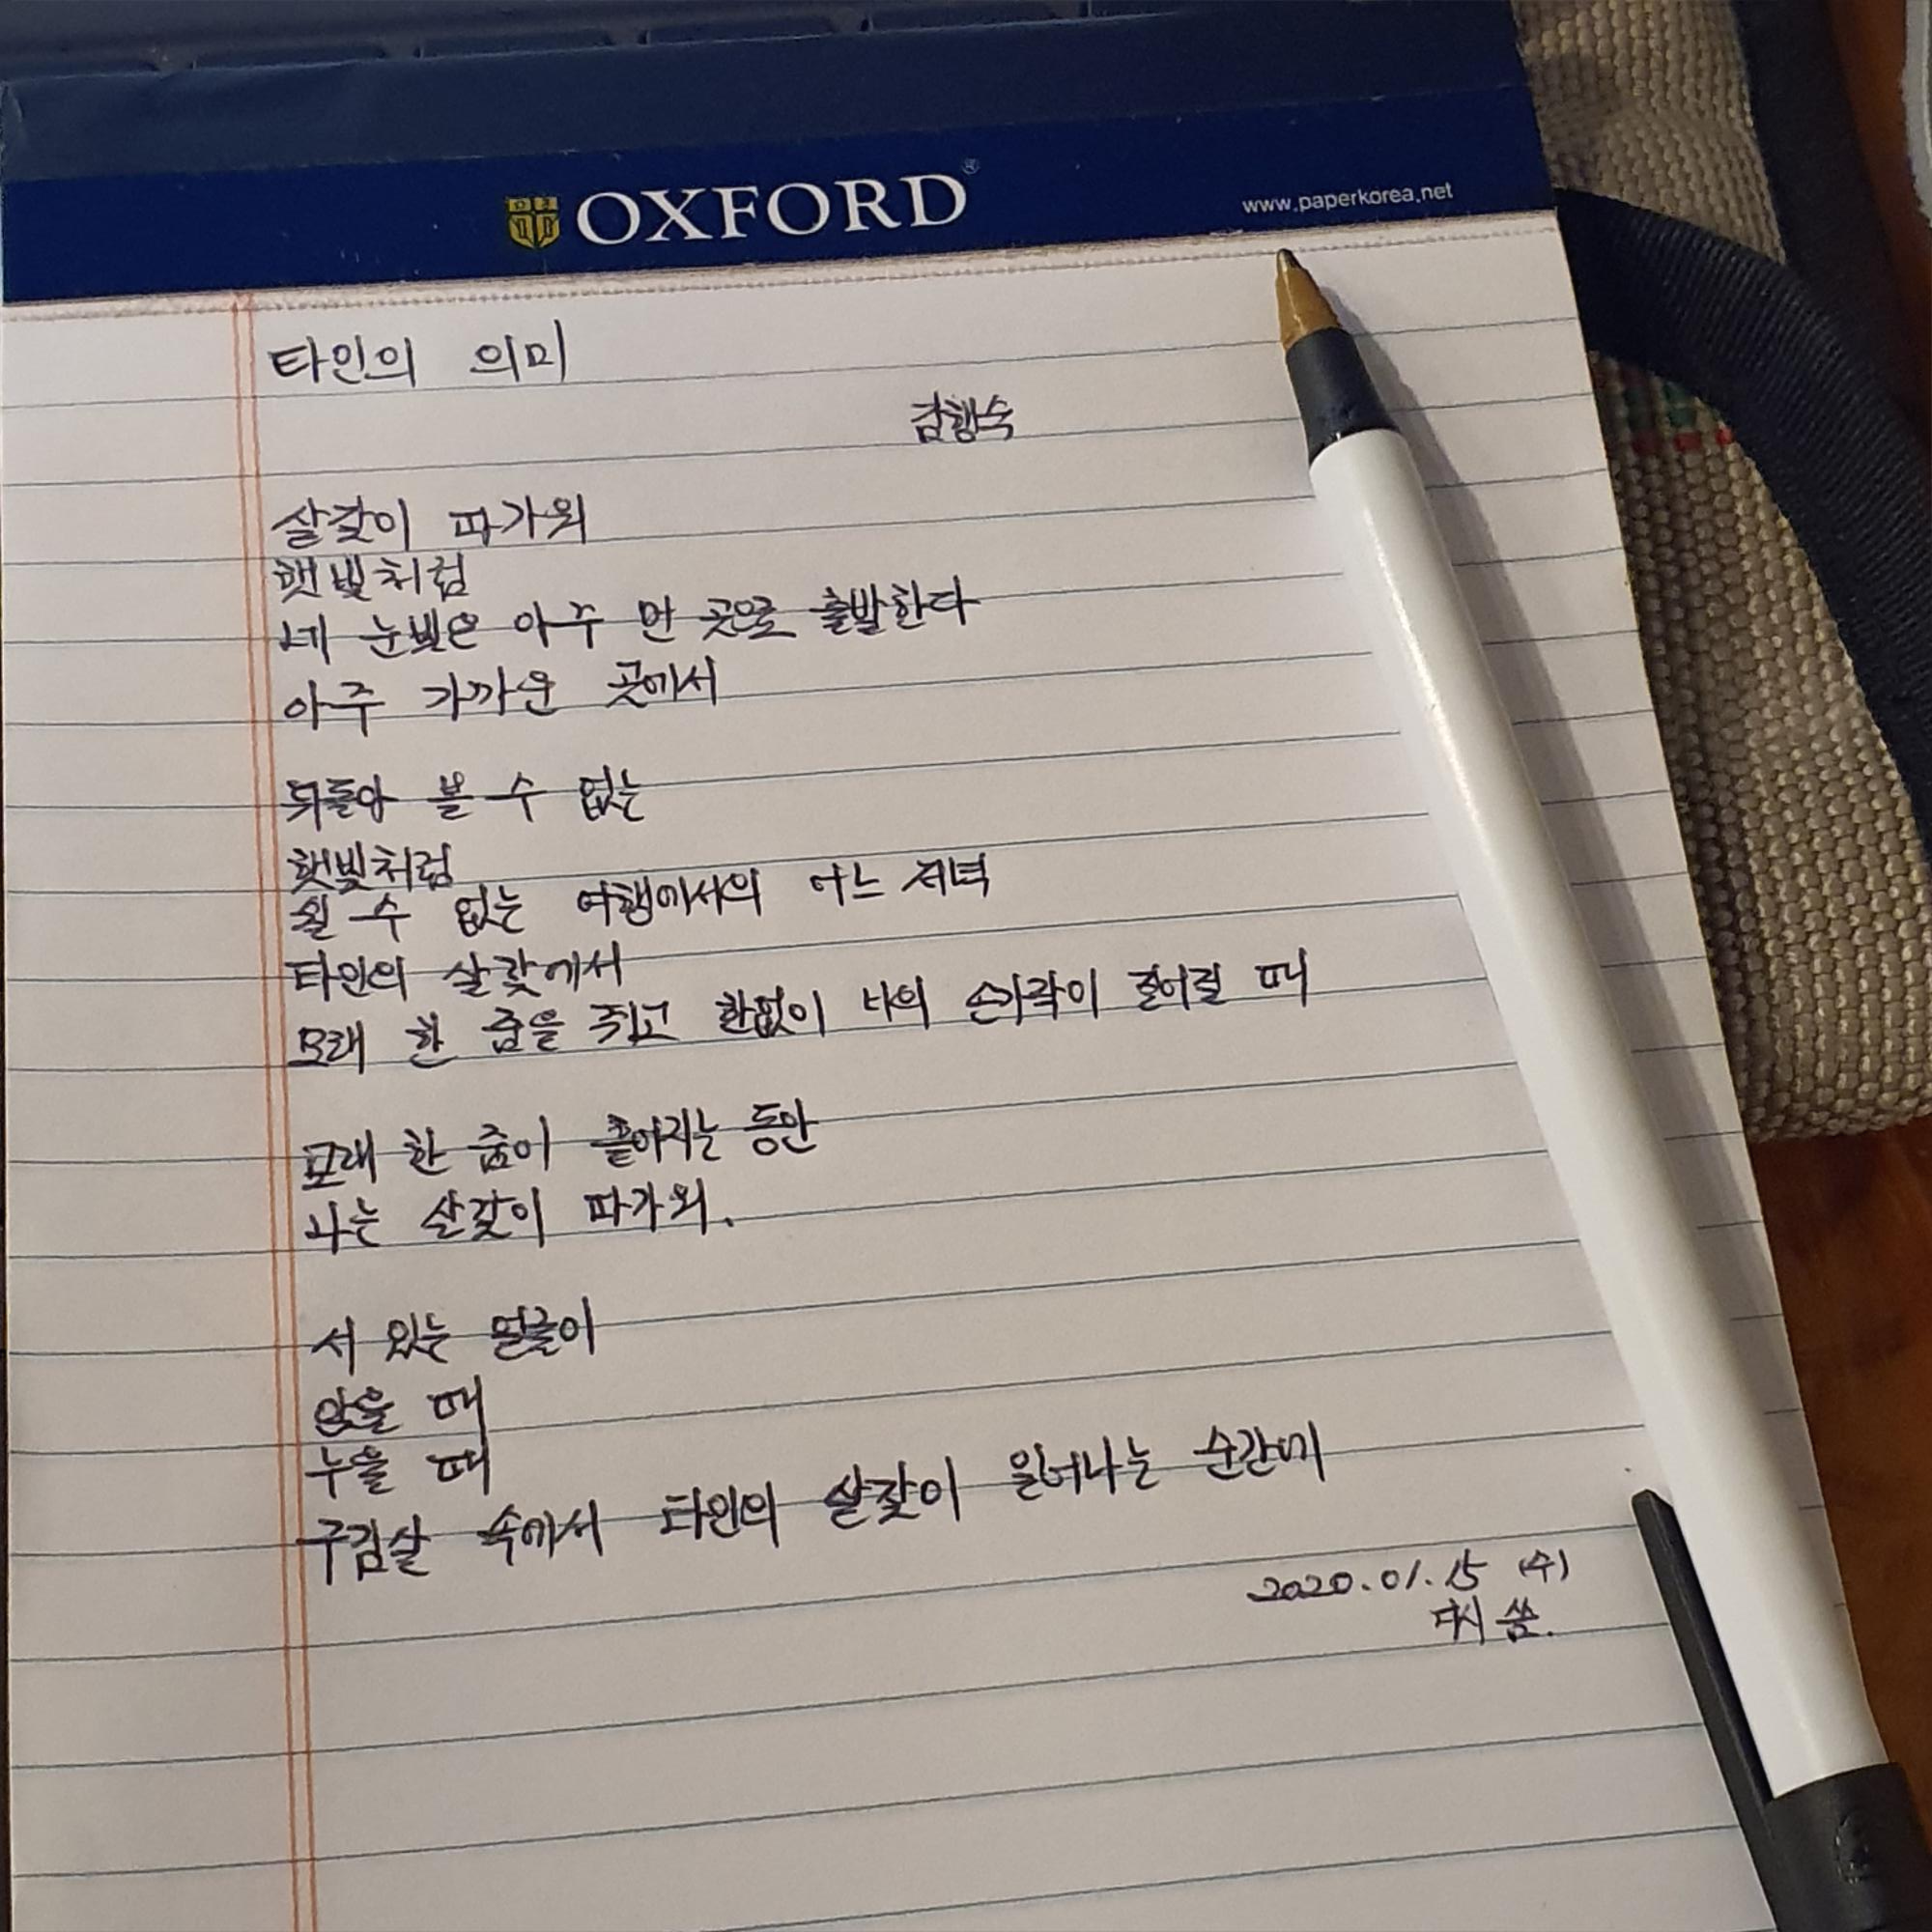 OXFORD®
www.paperkorea.net
타인의 의미
김행숙
살갗이 따가워
햇빛처럼
네 눈빛은 아주 먼 곳으로 출발한다
아주 가까운 곳에서
뒤돌아 볼 수 없는
햇빛처럼
쉴 수 없는 여행에서의 어느 저녁
타인의 살갗에서
모래 한 줌을 쥐고 한없이 너의 손가락이 길어질 때
모래 한 줌이 흩어지는 동안
나는 살갗이 따가워.
서 있는 얼굴이
앉을 때
누울 때
구김살 속에서 타인의 살갗이 일어나는 순간에
2020.01.15 (수)
다시 씀.